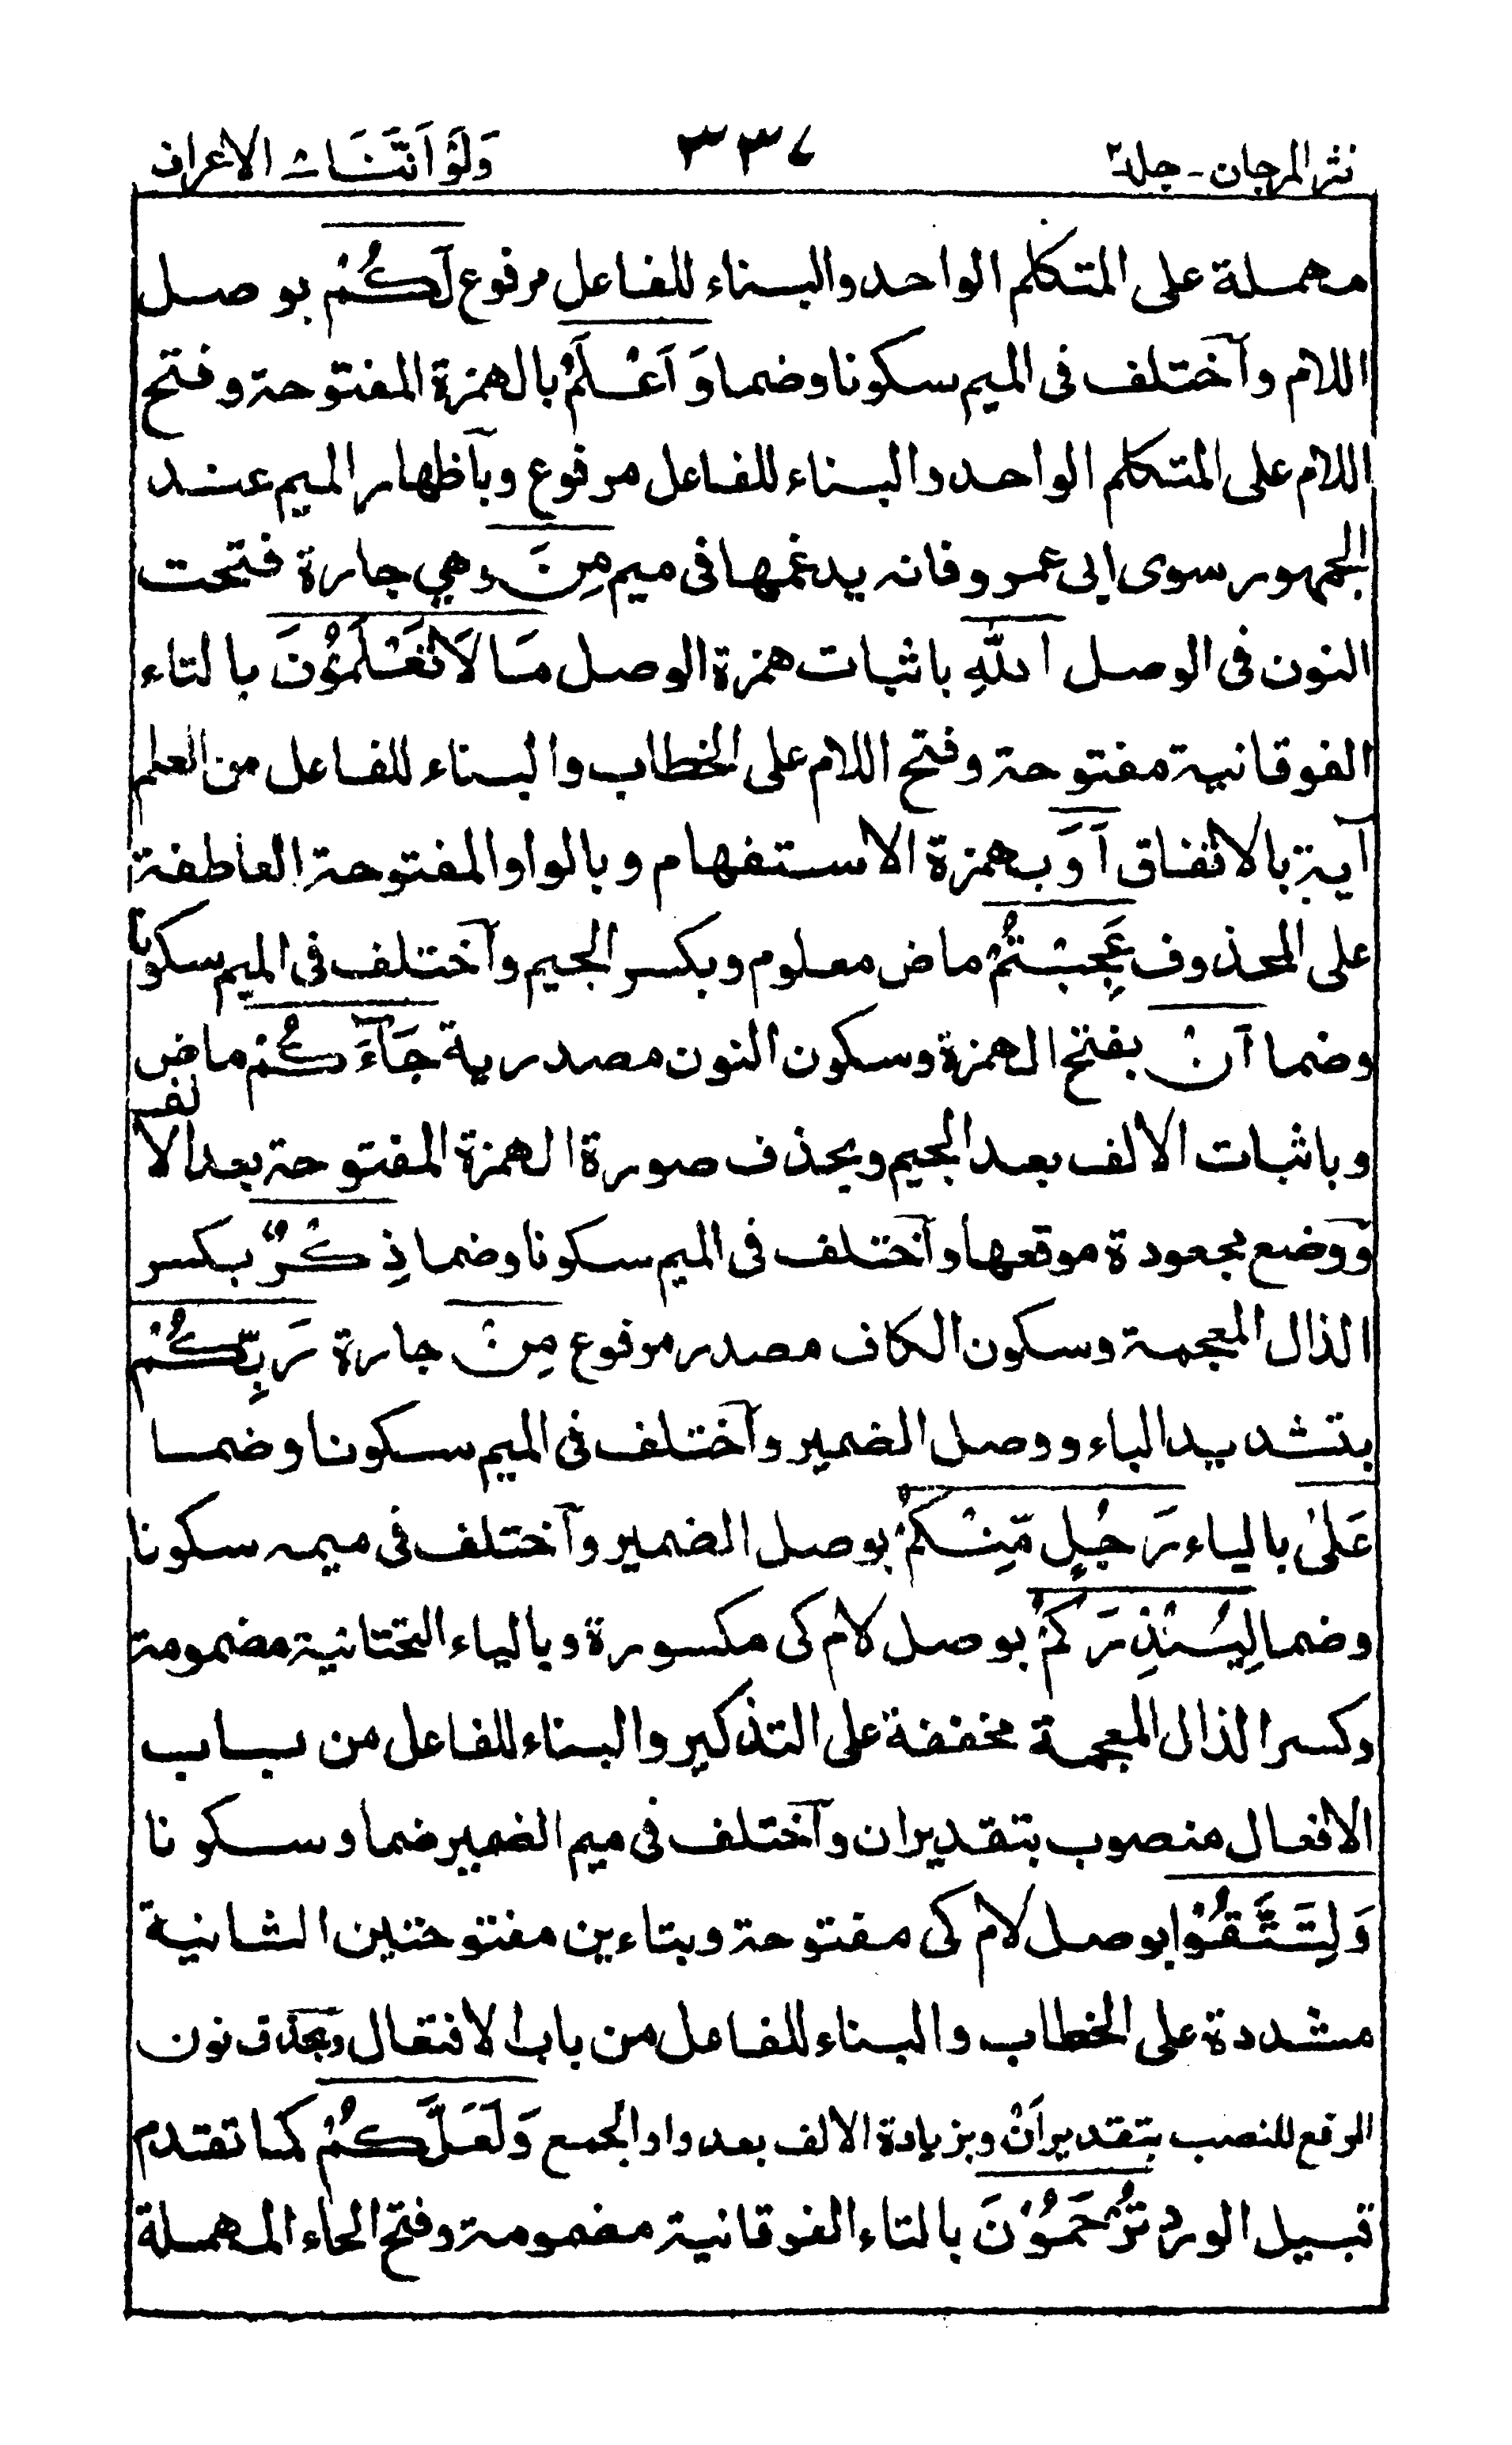 نثر المرجان - جلد ٢ ٣٣٧ وَلَوْ اَنَّنَا ـ الاعراف
مهملة على المتكلم الواحد والبناء للفاعل مرفوع لَكُمْ بوصل
اللام وآختلف فى الميم سكونا وضما وَ اَعْلَمُ بالهمزة المفتوحة وفتح
اللام على المتكلم الواحد والبناء للفاعل مرفوع وبآظهار الميم عند
الجمهور سوى ابى عمرو فانه يدغمها فى ميم مِنَ وهي جارة فتحت
النون فى الوصل اللهِ باثبات همزة الوصل مَا لَا تَعْلَمُوْنَ بالتاء
الفوقانية مفتوحة وفتح اللام على الخطاب والبناء للفاعل من العلم
آية بالاتفاق اَوَ بهمزة الاستفهام وبالواو المفتوحة العاطفة
على المحذوف عَجِبْتُمْ ماض معلوم وبكسر الجيم وآختلف فى الميم سكونا
وضما اَنْ بفتح الهمزة وسكون النون مصدرية جَآءَكُمْ ماض
وباثبات الالف بعد الجيم وبحذف صورة الهمزة المفتوحة بعد الالف
ووضع بجعودة موقعها وآختلف فى الميم سكونا وضما ذِكْرٌ بكسر
الذال المعجمة وسكون الكاف مصدر مرفوع مِنْ جارة رَبِّكُمْ
بتشديد الباء ووصل الضمير وآختلف فى الميم سكونا وضما
عَلٰى بالياء رَجُلٍ مِّنْكُمْ بوصل الضمير وآختلف فى ميمه سكونا
وضما لِيُنْذِرَكُمْ بوصل لام كى مكسورة وبالياء التحتانية مضمومة
وكسر الذال المعجمة مخففة على التذكير والبناء للفاعل من باب
الافعال منصوب بتقدير ان وآختلف فى ميم الضمير ضما وسكونا
وَلِتَتَّقُوْا بوصل لام كى مفتوحة وبتاءين مفتوحتين الثانية
مشددة على الخطاب والبناء للفاعل من باب الافتعال وبحذف نون
الرفع للنصب بتقدير اَنْ وبزيادة الالف بعد واو الجمع وَلَعَلَّكُمْ كما تقدم
قبيل الورد تُرْحَمُوْنَ بالتاء الفوقانية مضمومة وفتح الحاء المهملة